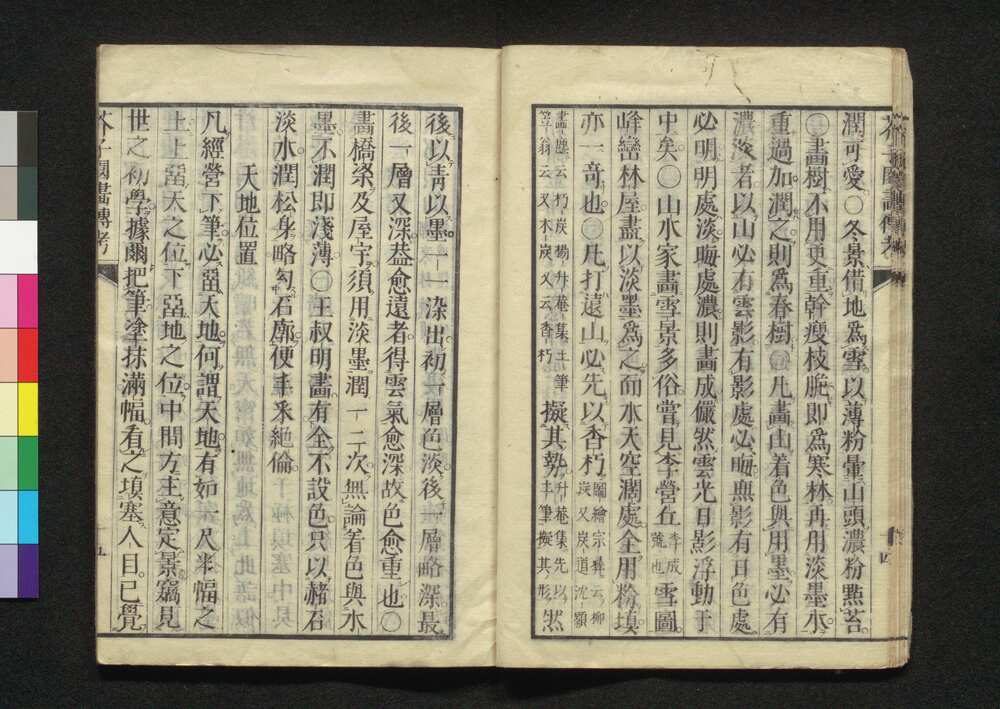 潤可愛○冬景借地為雪以薄粉暈山頭濃粉點苔
○畫樹不用更重幹瘦枝脆即為寒林再用淡墨水
重過加潤之則為春樹○凡畫山着色與用墨必有
濃淡者以山必有雲影有影處必晦無影有日色處
必明明處淡晦處濃則畫成儼然雲光日影浮動于
中矣○山水家畫雪景多俗嘗見李營丘李成號也雪圖
峰巒林屋盡以淡墨為之而水天空濶處全用粉填
亦一奇也○凡打遠山必先以香朽
擬其勢
然
後以青以墨一一染出初一層色淡後一層略深最
後一層又深葢愈遠者得雲氣愈深故色愈重也○
畫橋梁及屋宇須用淡墨潤一二次無論着色與水
墨不潤即淺薄○王叔明畫有全不設色只以赭石
淡水潤松身略勾石廓便丰采絶倫
天地位置
凡經營下筆必留天地何謂天地有如一尺半幅之
上上留天之位下留地之位中間方主意定景竊見
世之初學據爾把筆塗抹滿幅看之填塞人目已覺
芥子園畫傳考
五
四